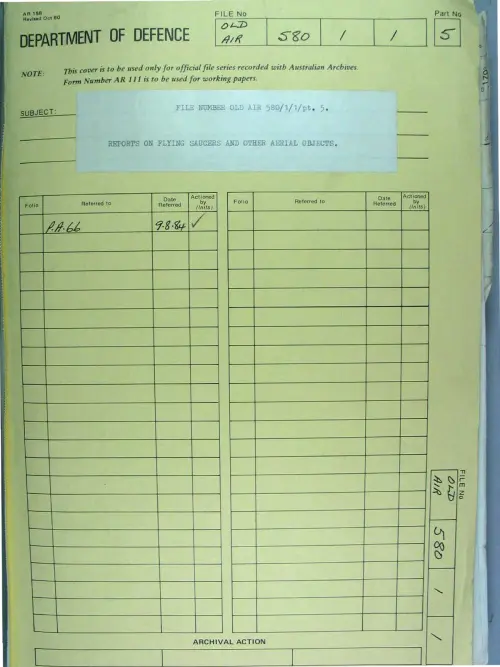 AR 156
Revised Oct 80
FILE No
Part No
DEPARTMENT OF DEFENCE
OLD AIR 580 / 1 / 1
5
NOTE: This cover is to be used only for official file series recorded with Australian Archives.
Form Number AR 111 is to be used for working papers.
SUBJECT:
FILE NUMBER OLD AIR 580/1/1/pt. 5.
REPORTS ON FLYING SAUCERS AND OTHER AERIAL OBJECTS.
Folio Referred to Date Referred Actioned by (Inits) Folio Referred to Date Referred Actioned by (Inits)
P.A. 66 9.8.84 ✓
FILE No
OLD AIR 580 / 1 / 1
ARCHIVAL ACTION